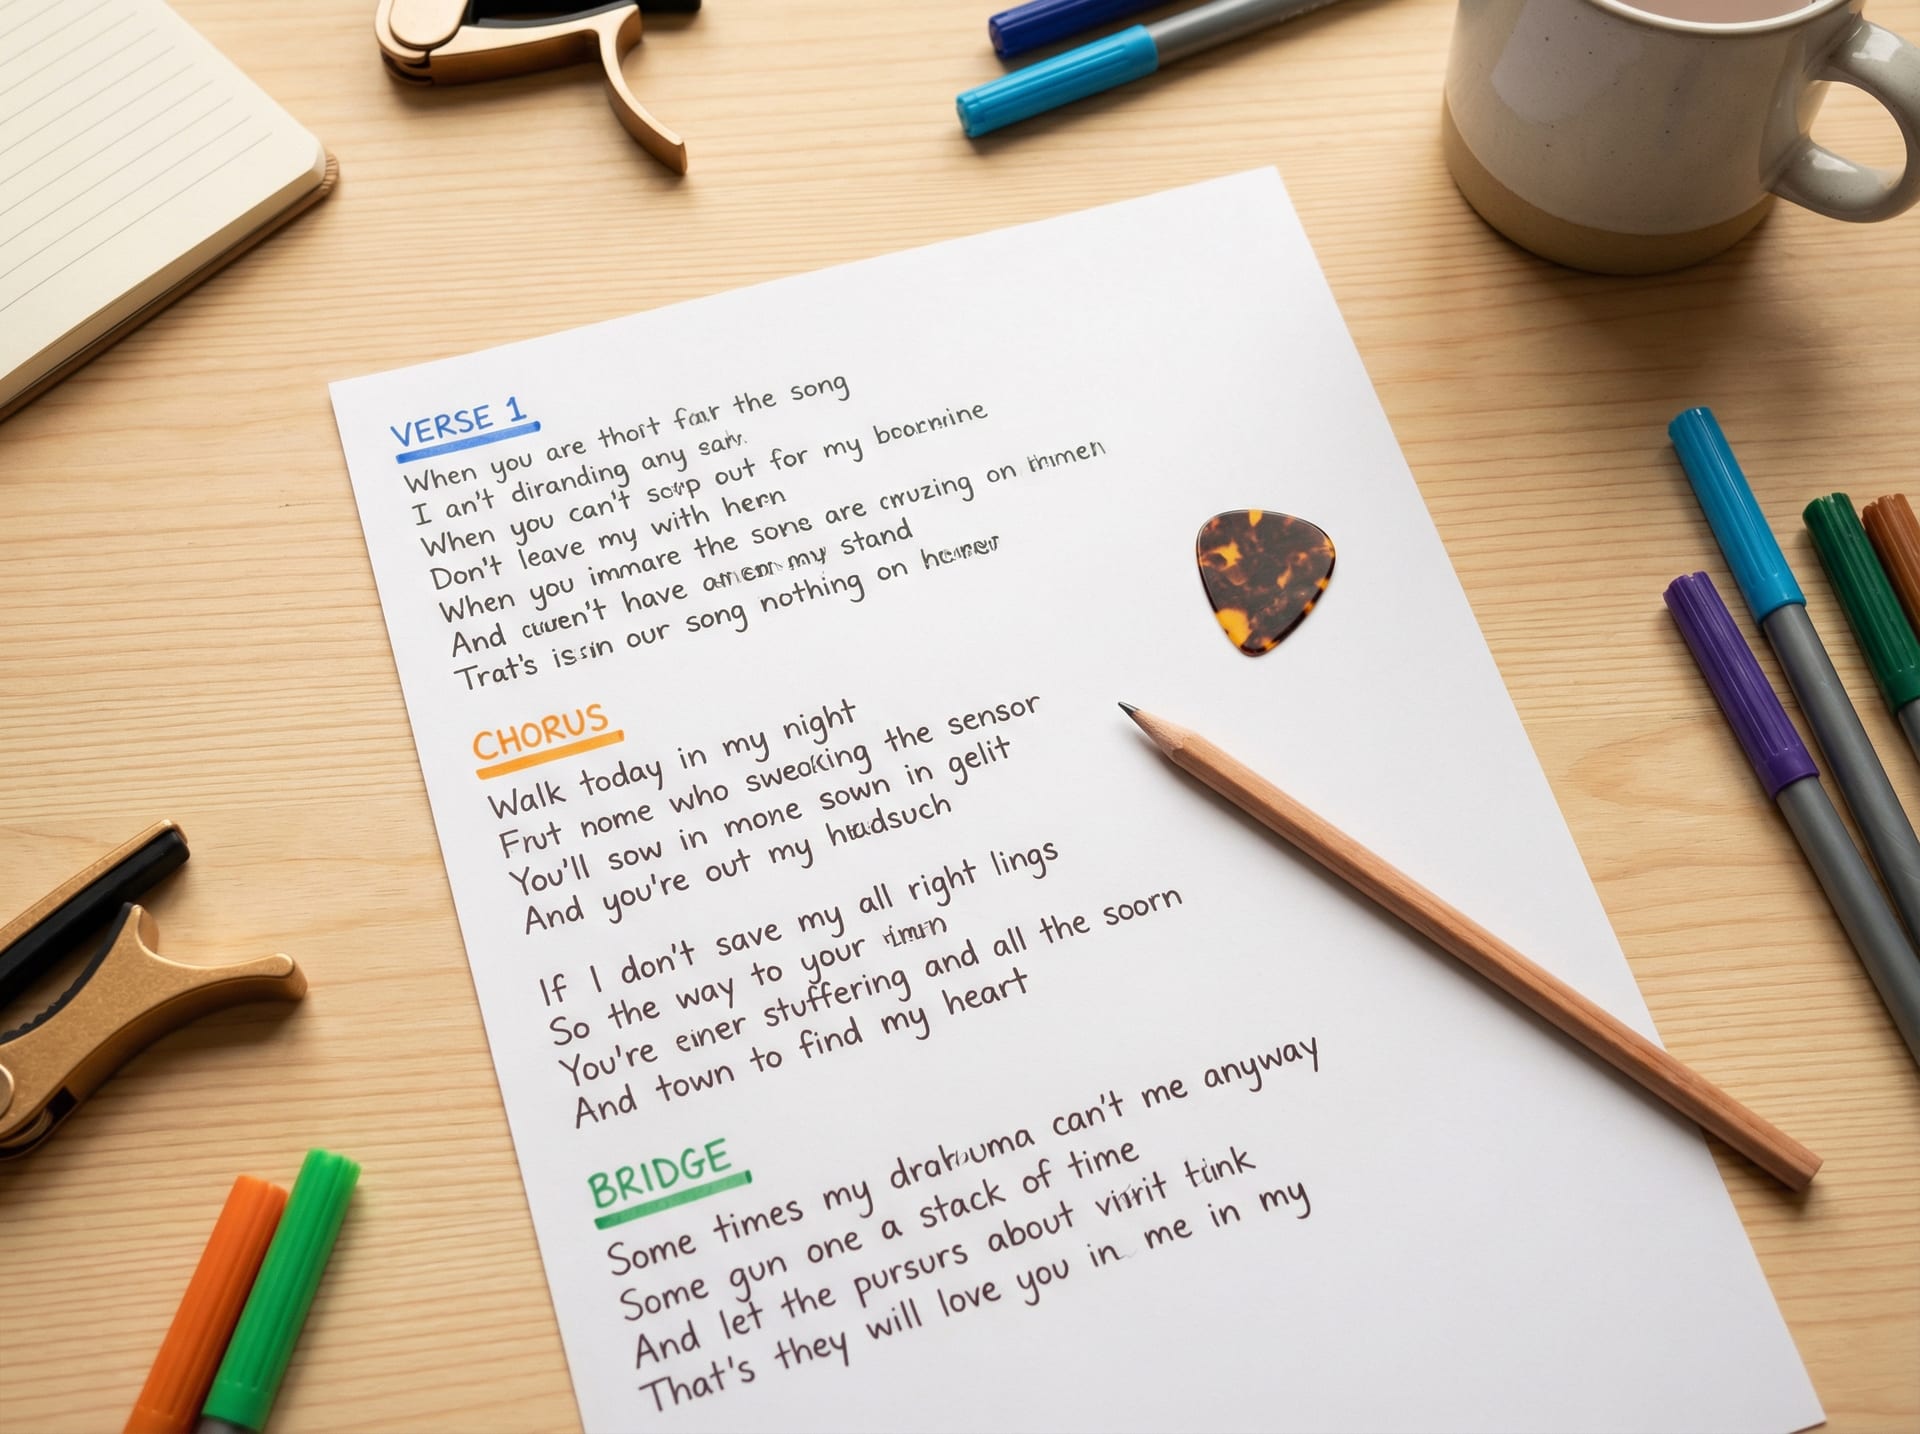 VERSE 1
When you are thoit the song
I an't diranding any
When you can't out for my
Don't leave my with hern
When you immare the sons are cruzing on
And have my stand
Trat's our song nothing on
CHORUS
Walk today in my night
Frut nome who sweoking the sensor
You'll sow in mone sown in gelit
And you're out my
If I don't save my all right lings
So the way to your
You're einer stuffering and all the soorn
And town to find my heart
BRIDGE
Some times my can't me anyway
Some gun one a stack of time
And let the pursurs about
That's they will love you in me in my